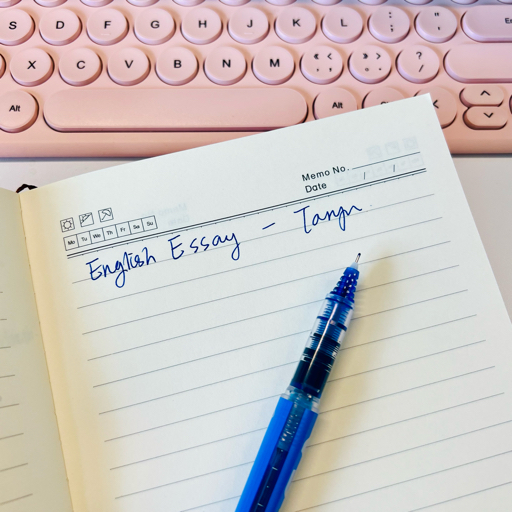 S D F G H J K L
X C V B N M ? /
Alt Alt
Memo No.
Date / /
Mo Tu We Th Fr Sa Su
English Essay -